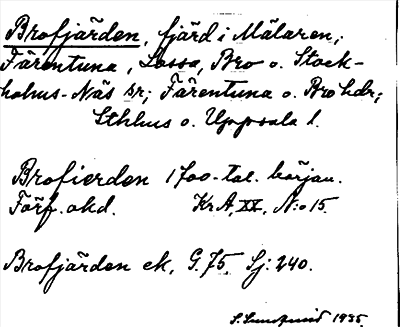 Brofjärden, fjärd i Mälaren,
Färentuna, Lossa, Bro o. Stock-
holms-Näs sr; Färentuna o. Bro hdr;
Sthlms o. Uppsala l.
Brofierden 1700-tal. början.
Förf. okd. KrA, XX, N:o 15.
Brofjärden ek, G. 75. Sj: 240.
S. 1935.